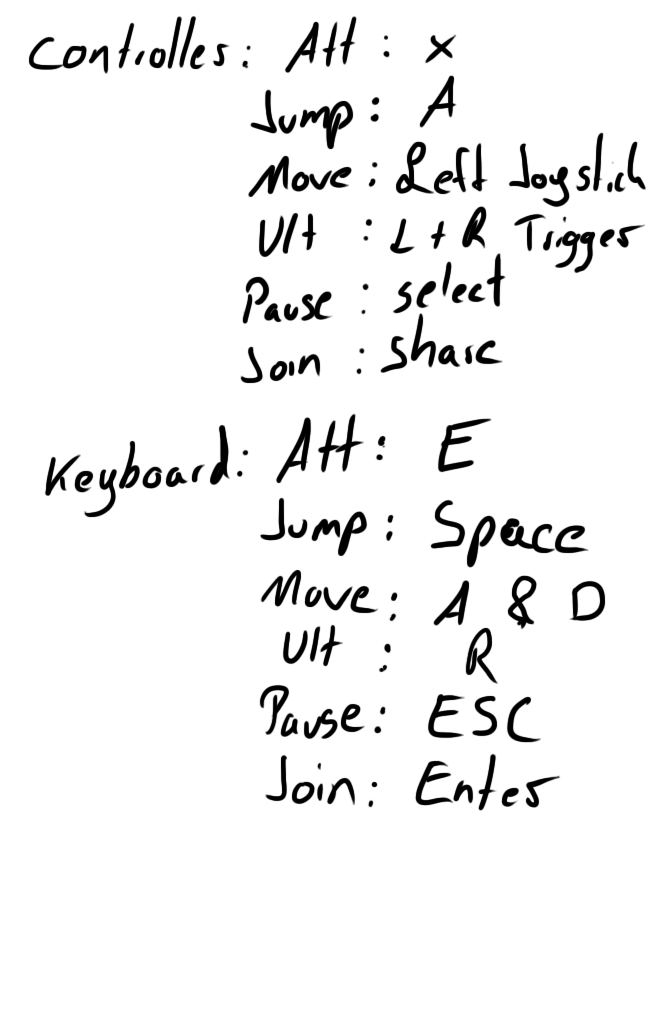 Controller: Att: x
Jump: A
Move: Left Joystick
Ult: L + R Trigger
Pause: select
Join: share
Keyboard: Att: E
Jump: Space
Move: A & D
Ult: R
Pause: ESC
Join: Enter